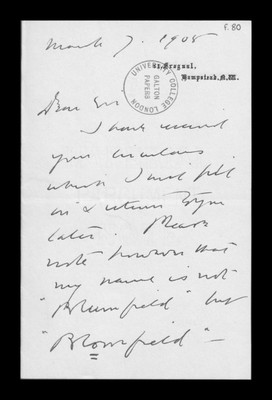 f. 80
March 7. 1905
Frognal,
Hampstead, N.W.
UNIVERSITY COLLEGE LONDON
GALTON
PAPERS
Dear Sir,
I have received
your circulars
which I will fill
in & return to you
later. Please
note however that
my name is not
"Blumfield" but
"Blomfield" –